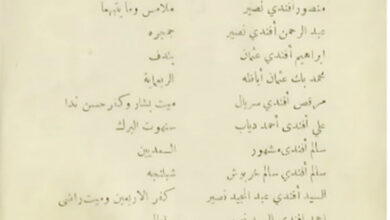 منصور أفندي نصير ملامس وما يتبعها
عبد الرحمن أفندي نصير جمجره
ابراهيم أفندي عثمان بندف
محمد بك عثمان أباظه الربعماية
مرقص أفندي سريال ميت بشار وكفر حسن ندا
علي أفندى أحمد دياب سنهوت البرك
سالم أفندى مشهور السعديين
سالم أفندي سالم خربوش شبانجه
السيد أفندي عبد المجيد نصير كفر الاربعين وميت راضى